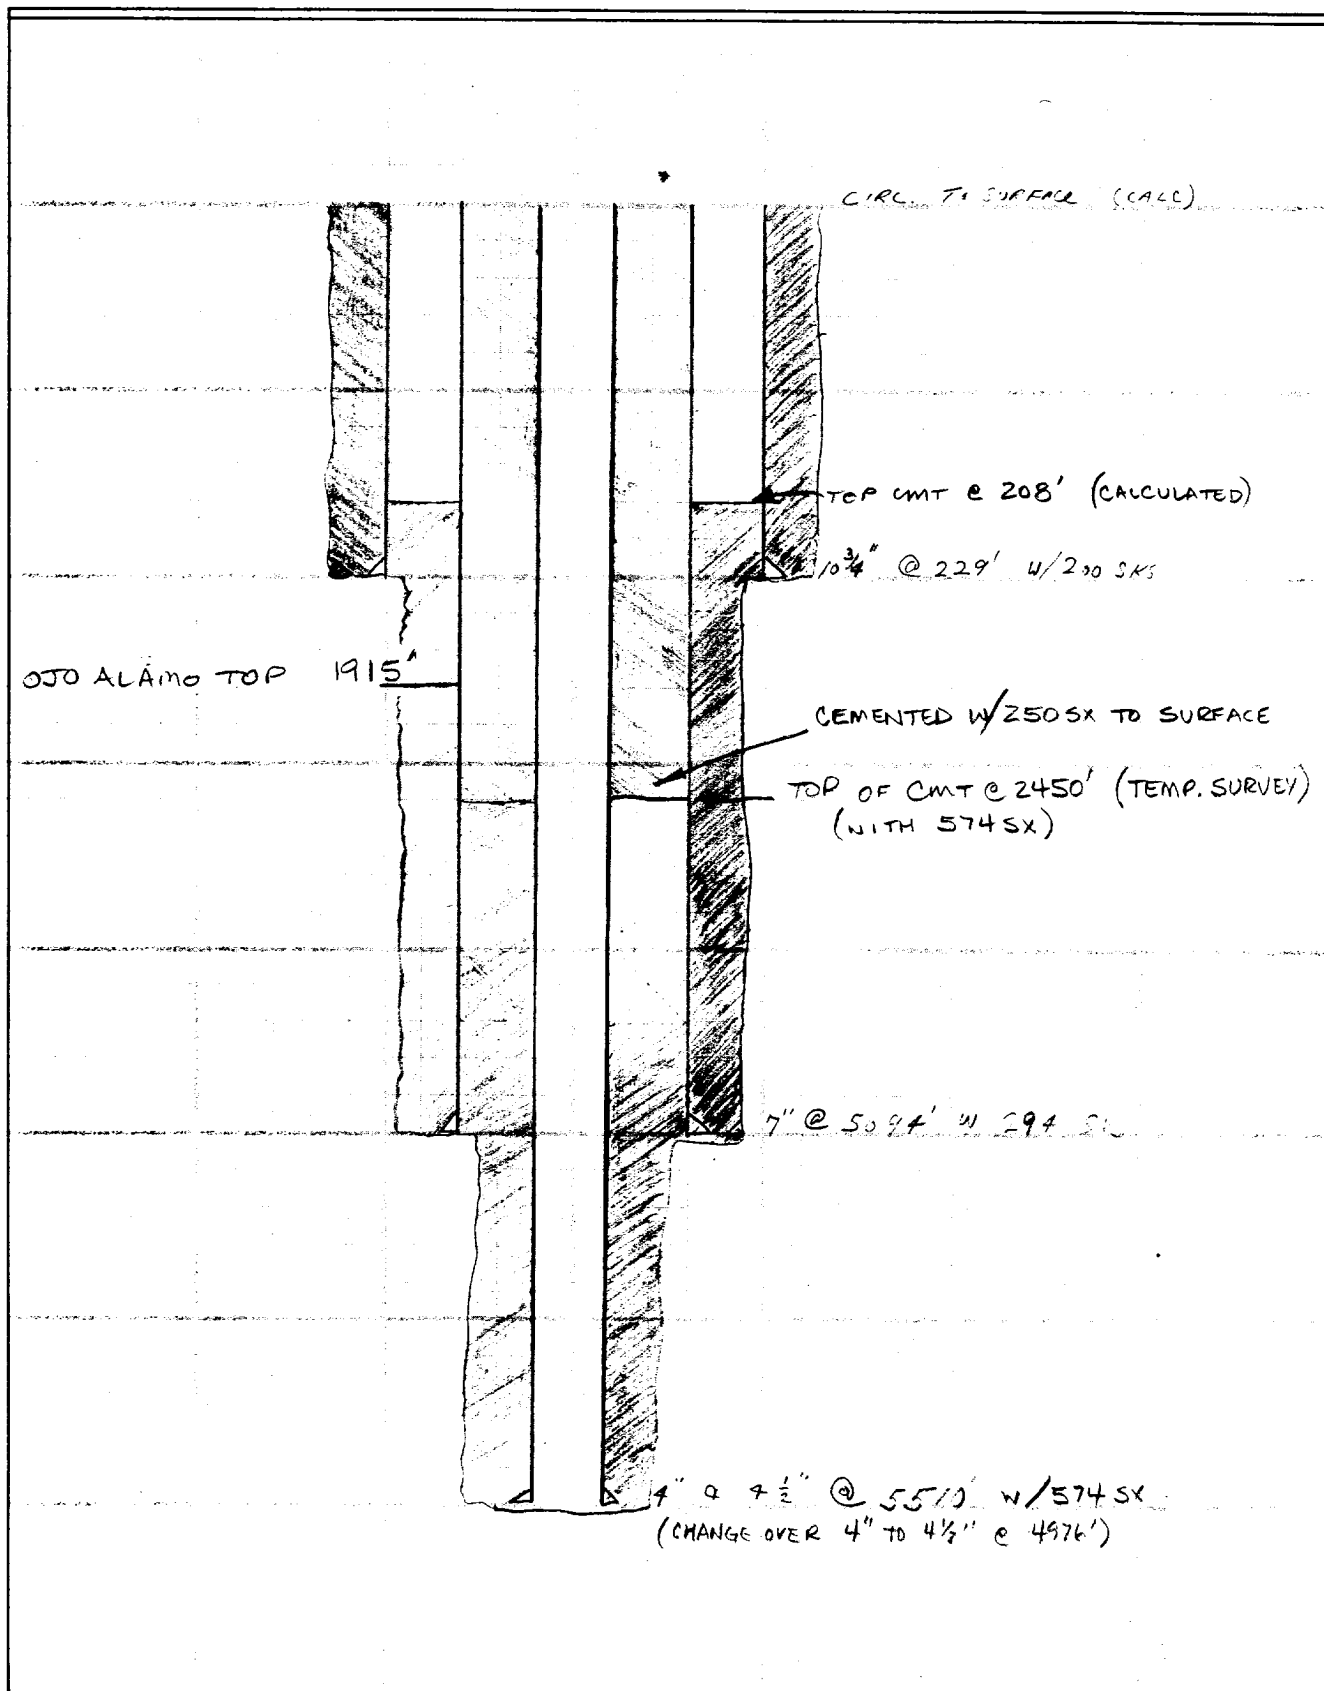 CIRC. TO SURFACE (CALC)
TOP CMT @ 208' (CALCULATED)
10 3/4" @ 229' W/200 SKS
OJO ALAMO TOP 1915'
CEMENTED W/250 SX TO SURFACE
TOP OF CMT @ 2450' (TEMP. SURVEY)
(WITH 574 SX)
7" @ 5094' W
4" 4 1/2" @ 5510' W/574 SX
(CHANGE OVER 4" TO 4 1/2" @ 4976')